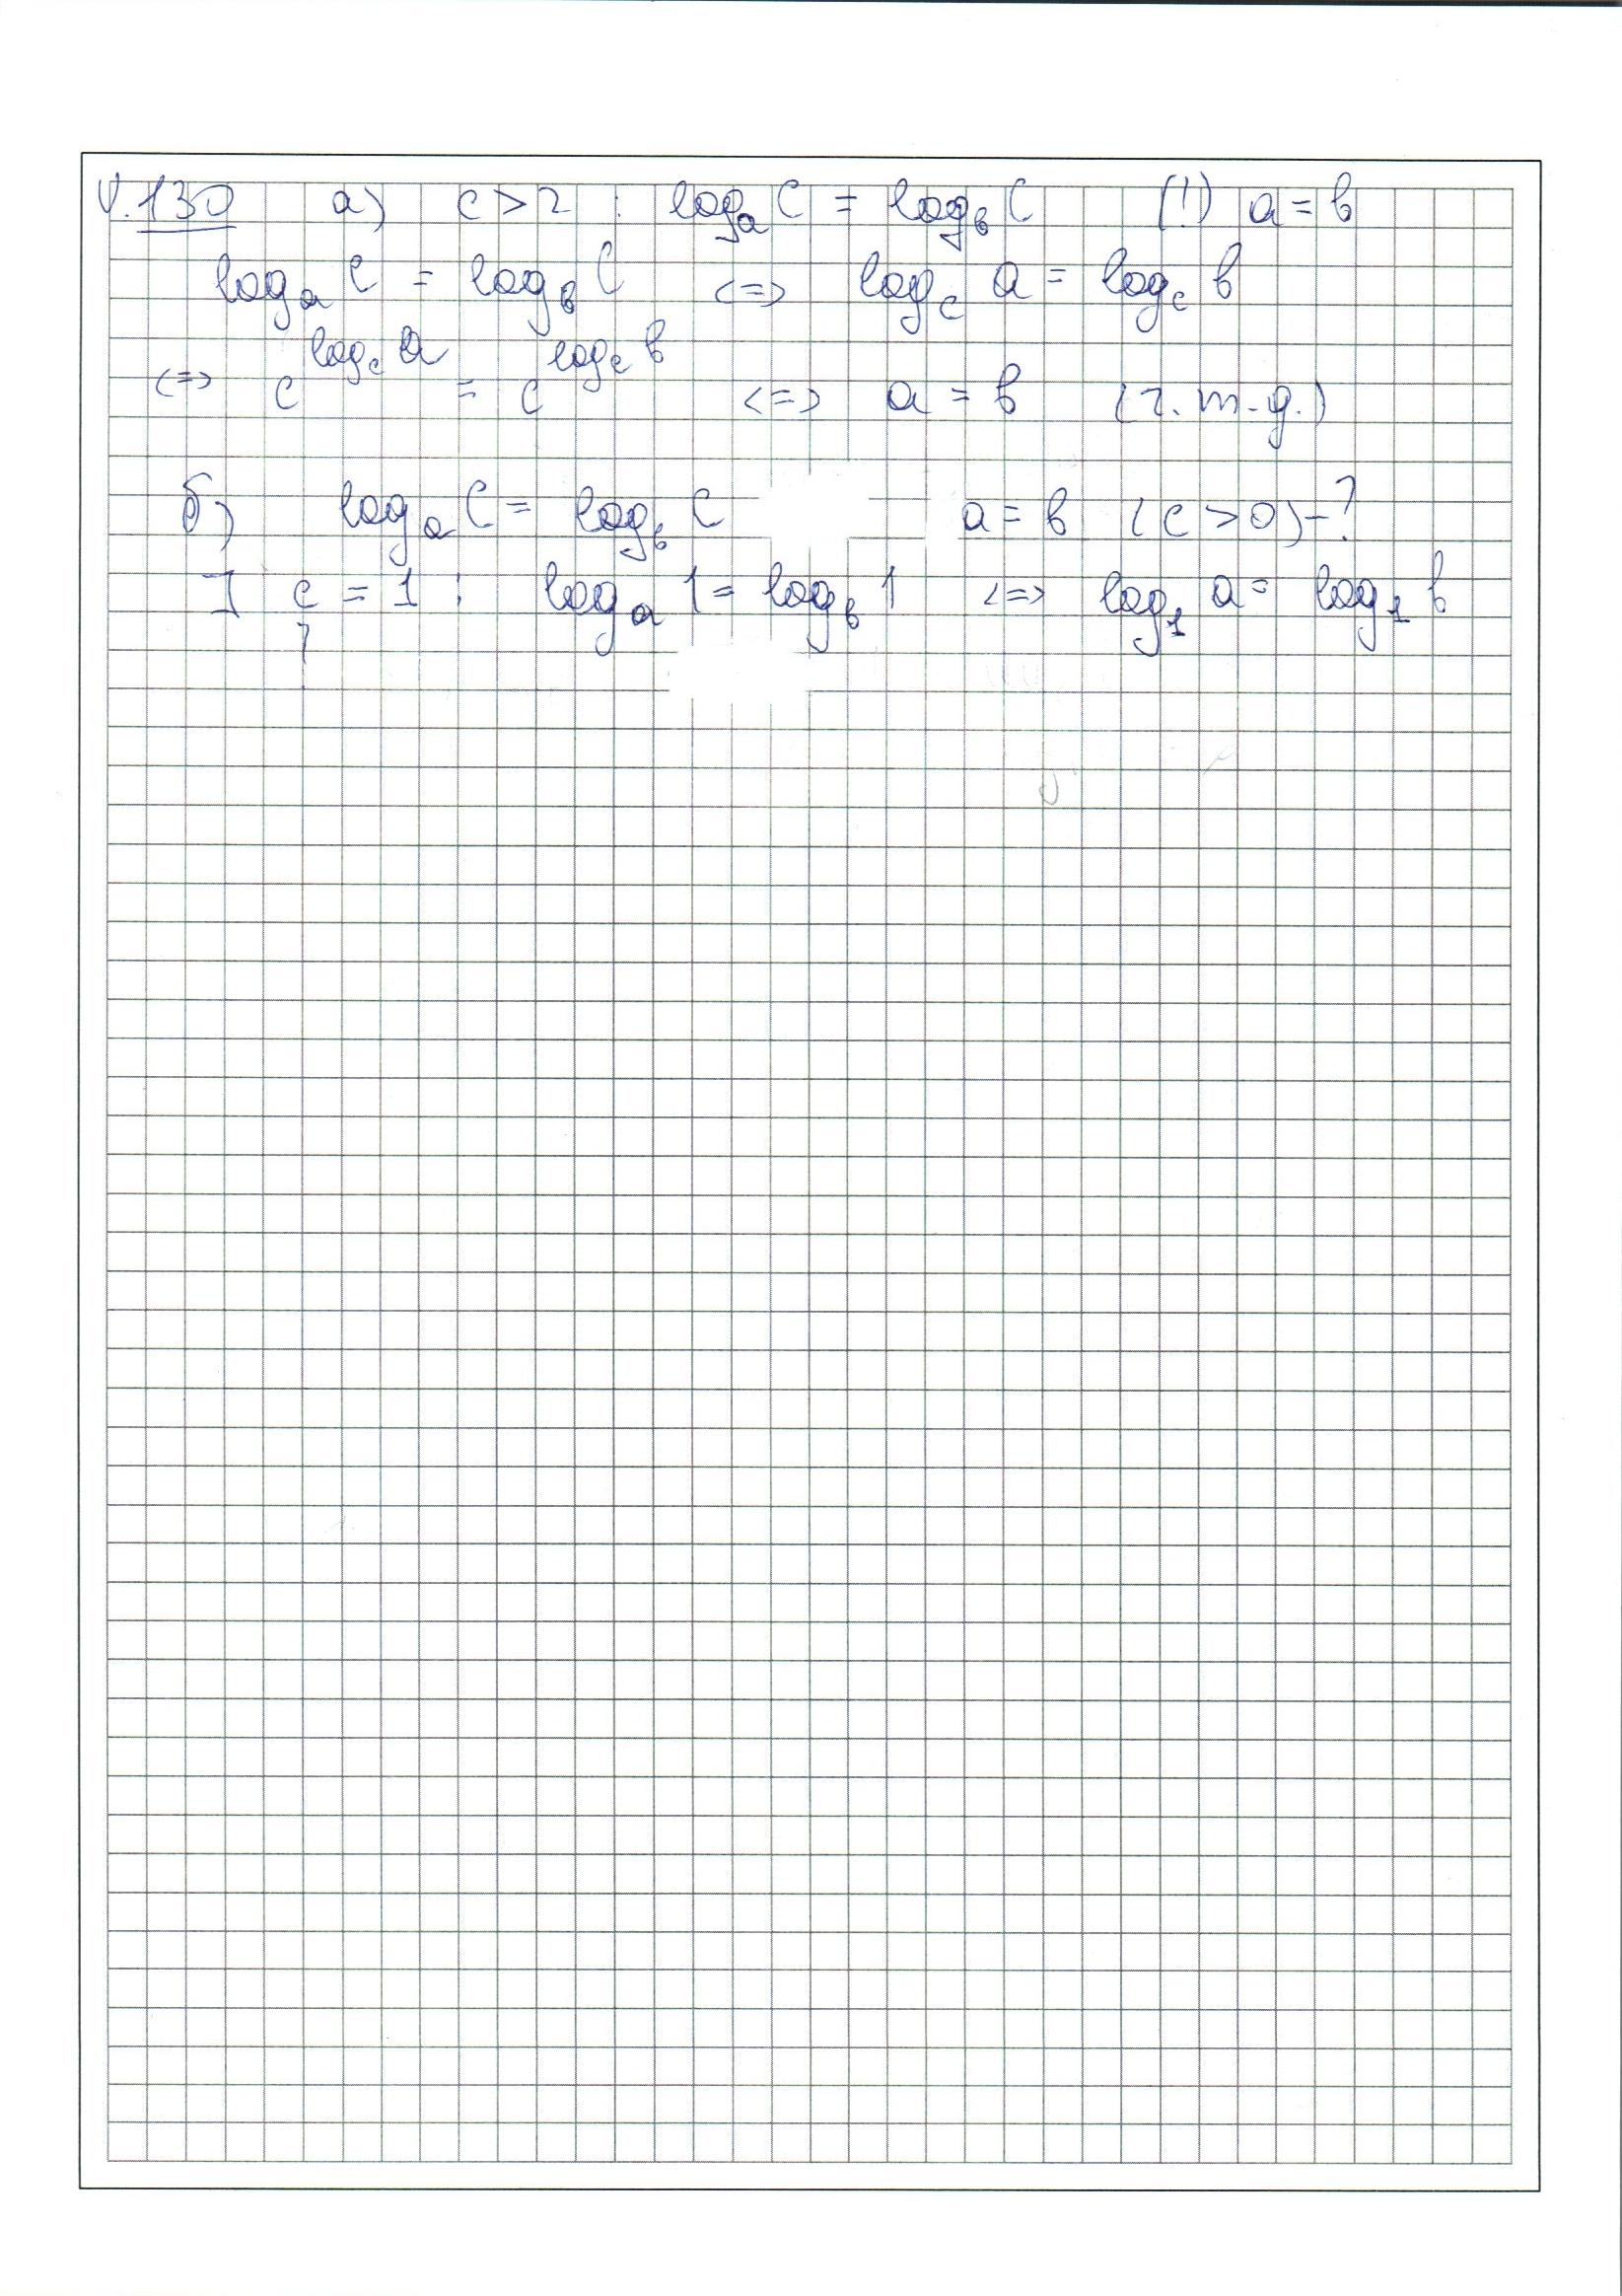 V.130 а) c > 2 : log_a c = log_b c (!) a = b
log_a c = log_b c <=> log_c a = log_c b
<=> c^(log_c a) = c^(log_c b) <=> a = b (ч.т.д.)
б) log_a c = log_b c a = b (c > 0) - ?
] c = 1 : log_a 1 = log_b 1 <=> log_1 a = log_1 b